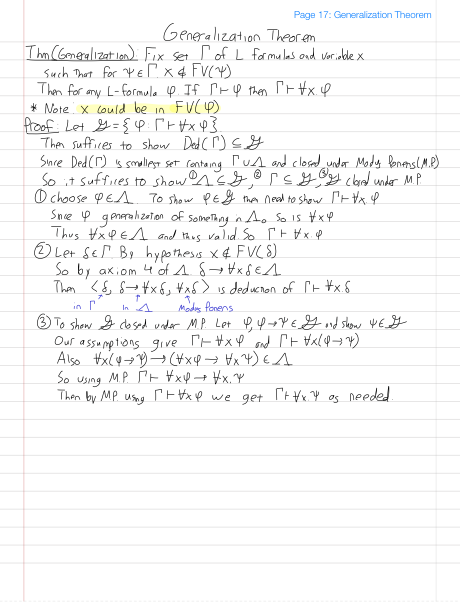 Page 17: Generalization Theorem
Generalization Theorem
Thm (Generalization). Fix set Γ of L formulas and variable x
such that for ψ ∈ Γ x ∉ FV(ψ)
Then for any L-formula φ. If Γ ⊢ φ then Γ ⊢ ∀x.φ
* Note: x could be in FV(φ)
Proof: Let 𝒢 = {φ: Γ ⊢ ∀x φ}.
Then suffices to show Ded(Γ) ⊆ 𝒢
Since Ded(Γ) is smallest set containg Γ ∪ Λ and closed under Modus Ponens (M.P.)
So it suffices to show ① Λ ⊆ 𝒢, ② Γ ⊆ 𝒢, ③ 𝒢 closed under M.P.
① choose φ ∈ Λ. To show φ ∈ 𝒢 then need to show Γ ⊢ ∀x.φ
Since φ generalization of something in Λ₀ so is ∀xφ
Thus ∀xφ ∈ Λ and thus valid So Γ ⊢ ∀x.φ
② Let δ ∈ Γ By hypothesis x ∉ FV(δ)
So by axiom 4 of Λ δ → ∀xδ ∈ Λ
Then ⟨δ, δ → ∀xδ, ∀xδ⟩ is deduction of Γ ⊢ ∀xδ
in Γ in Λ Modus Ponens
③ To show 𝒢 closed under M.P. Let φ, φ → ψ ∈ 𝒢 and show ψ ∈ 𝒢
Our assumptions give Γ ⊢ ∀xφ and Γ ⊢ ∀x(φ → ψ)
Also ∀x(φ → ψ) → (∀xφ → ∀xψ) ∈ Λ
So using M.P. Γ ⊢ ∀xφ → ∀x.ψ
Then by M.P. using Γ ⊢ ∀xφ we get Γ ⊢ ∀x.ψ as needed.